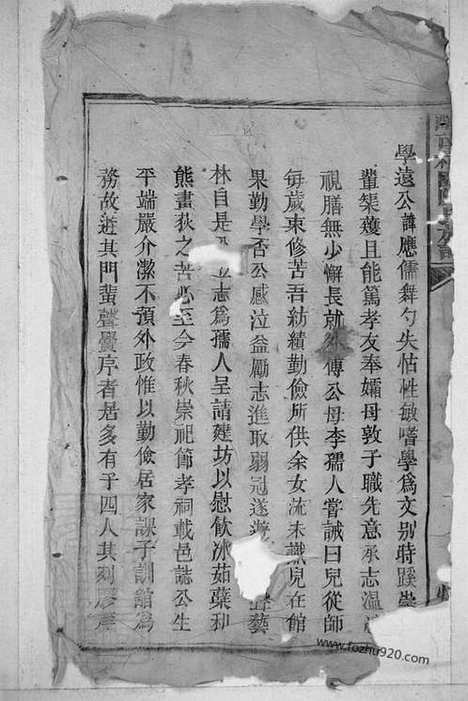 學遠公諱應儒舞勺失怙性敏嗜學為文別時蹊
輩榘矱且能篤孝友奉孀母敦子職先意承志溫
視膳無少懈長就外傅公母李孺人嘗誡曰兒從師
每歲束修苦吾紡績勤儉所供余女流未識兒在館
果勤學否公感泣益勵志進取弱冠遂 藝
林自是 立志為孺人呈請建坊以慰飲冰茹蘗和
熊畫荻之苦心至今春秋崇祀節孝祠載邑誌公生
平端嚴介潔不預外政惟以勤儉居家課子訓館為
務故遊其門蜚聲黌序者居多有子四人其列膠庠
www.fozhu920.com